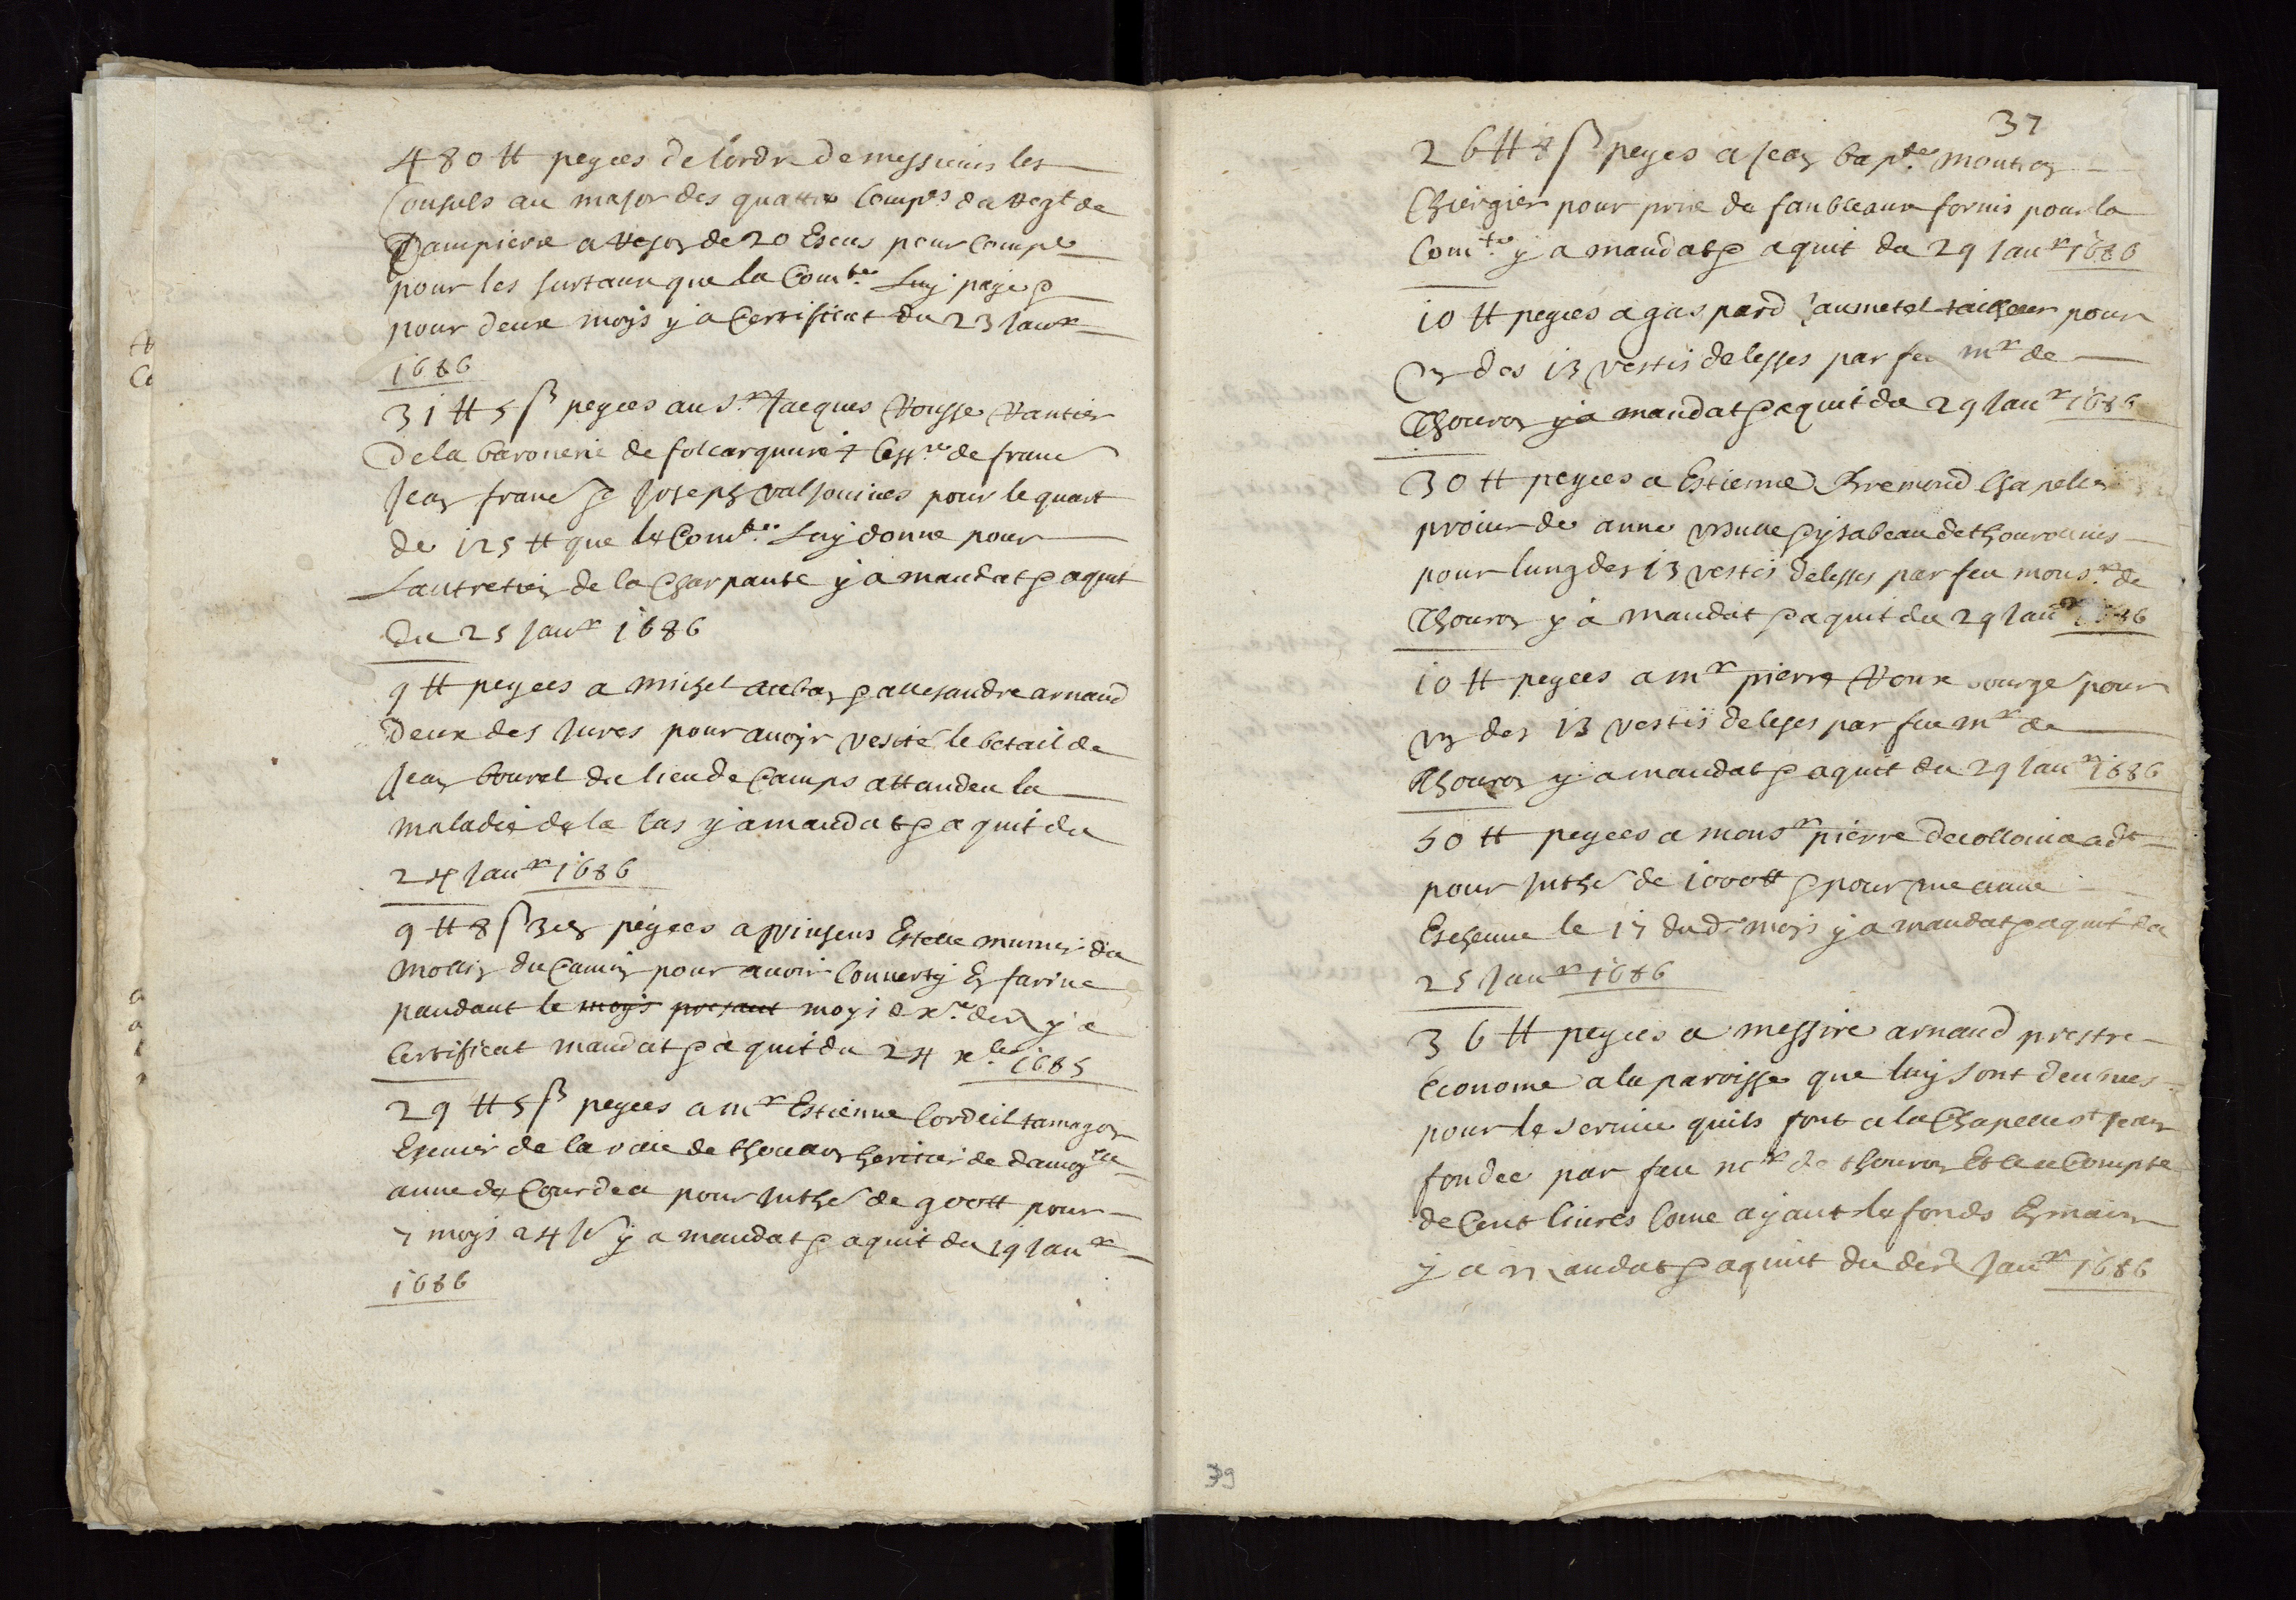 480 tt peyées de lordre de messieurs les
Consuls au major des quattre Comp.es du Regt de
Dampierre a reson de 20 Escus pour Compe
pour les surtaux que la Com.te Luy paye &
pour deux moys y a Certificat du 23 Janr
1686
31 tt 5 ß peyées au s.r Jacques Rousse Rantier
De la baronerie de folcarquure & Cess.re de franc
Jean franc & Joseph valsouines pour le quart
de 125 tt que la Com.te Luy donne pour
Lantretien de la Charpante y a mandat & aquit
du 25 Janr 1686
9 tt peyées a michel auban & allexandre arnaud
Deux des Jures pour avoyr vesité le betail de
Jean bourel du lieu de Camps attandeu la
maladie de la las y a mandat & aquit du
24 Janr 1686
9 tt 8 ß 3 d peyées a Vinsens Estelle munier du
Mollin du Camin pour avoir Converty En farine
pandant le moys presant moys de x.re der y a
Certificat mandat & aquit du 24 x.bre 1685
29 tt 5 ß peyées a mr Estienne Cordeil tamagon
Escuier de la ville de thoullon heritier de damoy.lle
anne de Courdea pour Inthe de 900 tt pour
7 moys 24 Jr y a mandat & aquit du 19 Janr
1686
37
26 tt 8 ß peyes a Jean bap.te mouton
Chiergier pour prix de fanbleaux fornis pour la
Com.te y a mandat & aquit du 29 Janr 1686
10 tt peyées a gaspard Jaumetel tailheur pour
Un des 13 vestis delesses par feu mr de
Thouron y a mandat & aquit du 29 Janr 1686
30 tt peyées a Estienne Bremond Chapellier
proiur de anne ursulle & ysabeau de thouronnes
pour lung des 13 vestis delesses par feu mons.r de
Thouron y a mandat & aquit du 29 Janr 1686
10 tt peyées a mr pierre Roux bourge pour
un des 13 vestis deleses par feu mr de
Thouron y a mandat & aquit du 29 Janr 1686
50 tt peyées a monsr pierre decollonia adt
pour Inthe de 1000 tt & pour une année
Escheue le 17 dud. moys y a mandat & aquit du
25 Janr 1686
36 tt peyées a messire arnaud prestre
Econome a la paroisse que luy sont deubues
pour le service quils font a la Chapelle st Jean
fondée par feu mr de thouron Et a Compte
de Cent livres Come ayant le fonds En main
y a mandat & aquit du der Janr 1686
39